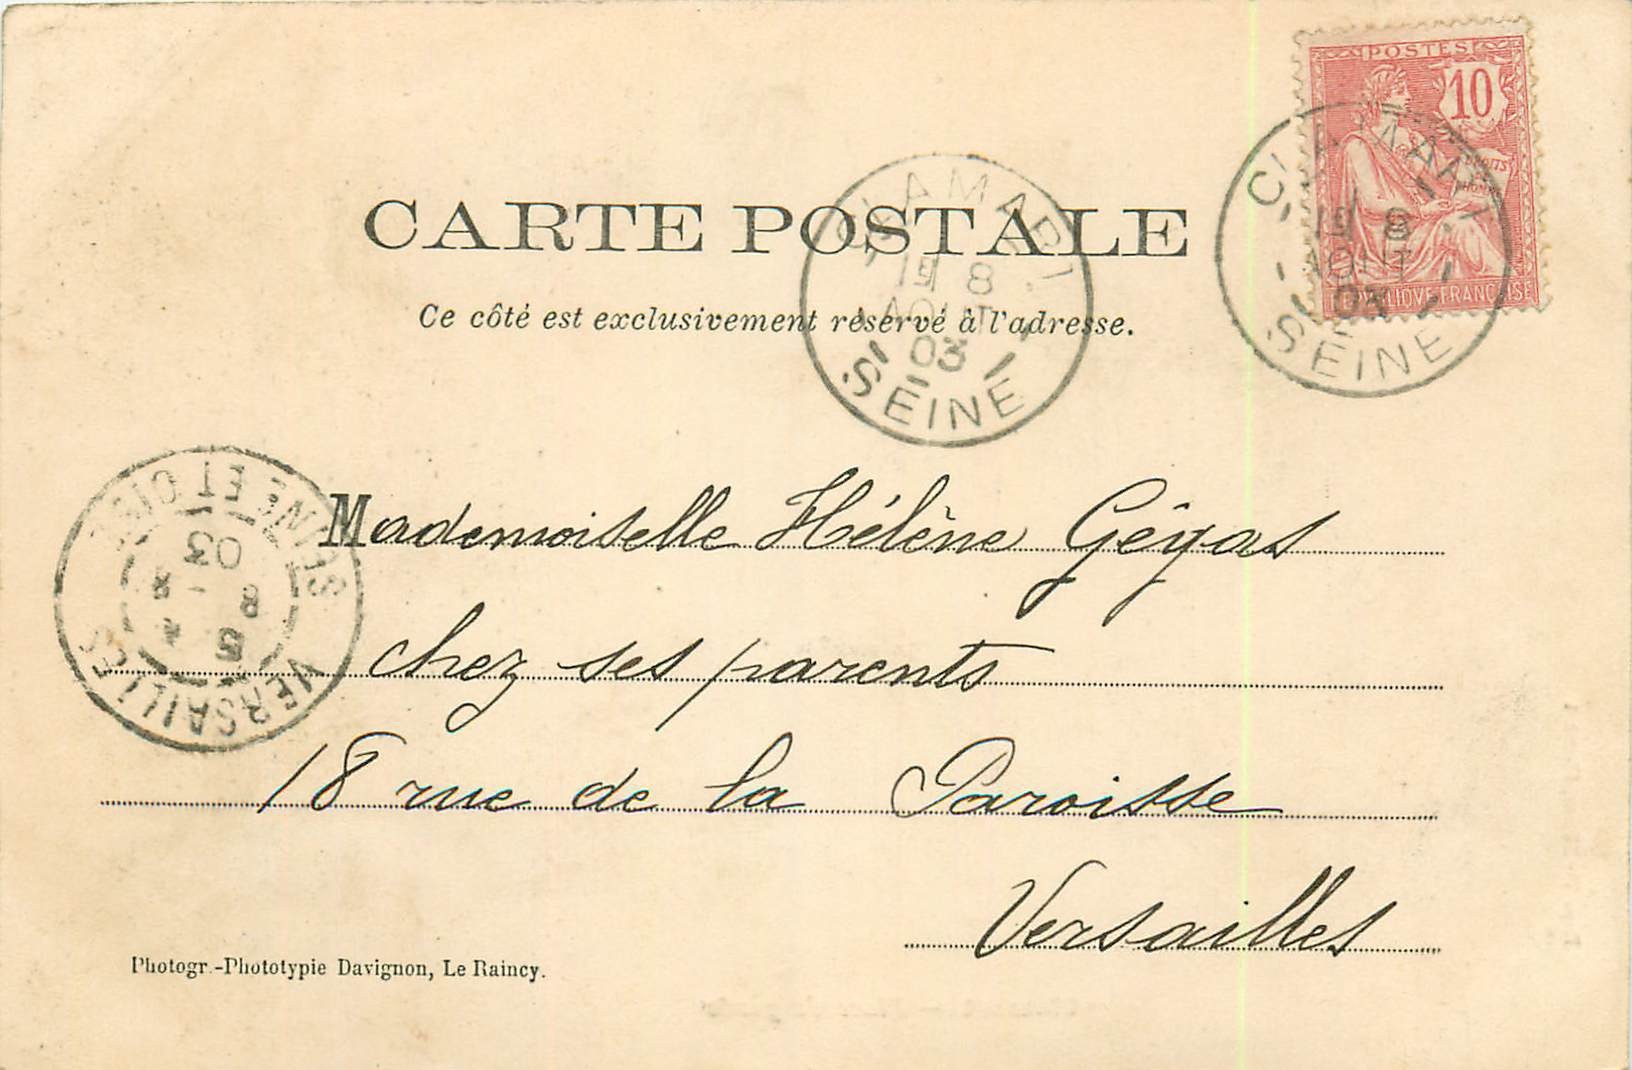 POSTES
10
DROITS
CARTE POSTALE
Ce côté est exclusivement réservé à l'adresse.
CLAMART
8
AOUT
03
SEINE
CLAMART
8
AOUT
03
SEINE
RÉPUBLIQUE FRANÇAISE
SEINE ET OISE
03
8
VERSAILLES
Mademoiselle Hélène Gégas
chez ses parents
18 rue de la Paroisse
Versailles
Photogr.-Phototypie Davignon, Le Raincy.